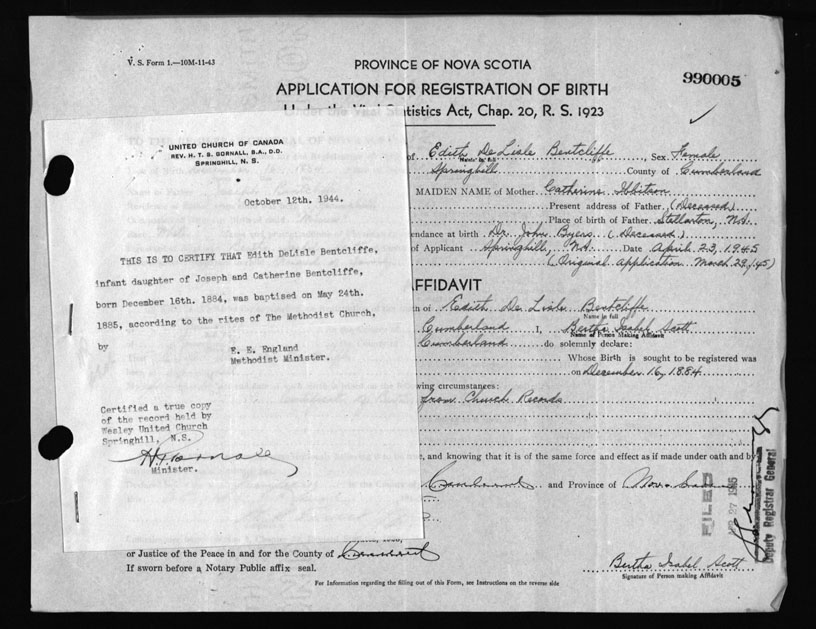 V. S. Form 1.—10M-11-43
PROVINCE OF NOVA SCOTIA
990005
APPLICATION FOR REGISTRATION OF BIRTH
Under the Vital Statistics Act, Chap. 20, R. S. 1923
of Edith De Lisle Bentcliffe Sex Female
Name in full
Springhill County of Cumberland
MAIDEN NAME of Mother Catherine
Present address of Father (Deceased)
Place of birth of Father Stellarton, N.S.
endance at birth Dr. John Byers (Deceased)
of Applicant Springhill, N.S. Date April 23, 1945
(Original application March 29/45)
FFIDAVIT
th of Edith De Lisle Bentcliffe
Name in full
Cumberland I, Bertha Isabel Scott
Name of Person Making Affidavit
Cumberland do solemnly declare:
Whose Birth is sought to be registered was
on December 16, 1884
wing circumstances:
from Church Records
e, and knowing that it is of the same force and effect as if made under oath and by
and Province of Nova
or Justice of the Peace in and for the County of
If sworn before a Notary Public affix seal.
Bertha Isabel Scott
Signature of Person making Affidavit
For Information regarding the filling out of this Form, see Instructions on the reverse side
FILED
27 1945
Deputy Registrar General
UNITED CHURCH OF CANADA
REV. H. T. S. GORNALL, B.A., D.D.
SPRINGHILL, N. S.
October 12th. 1944.
THIS IS TO CERTIFY THAT Edith DeLisle Bentcliffe,
infant daughter of Joseph and Catherine Bentcliffe,
born December 16th. 1884, was baptised on May 24th.
1885, according to the rites of The Methodist Church,
by
E. E. England
Methodist Minister.
Certified a true copy
of the record held by
Wesley United Church
Springhill, N.S.
Minister.